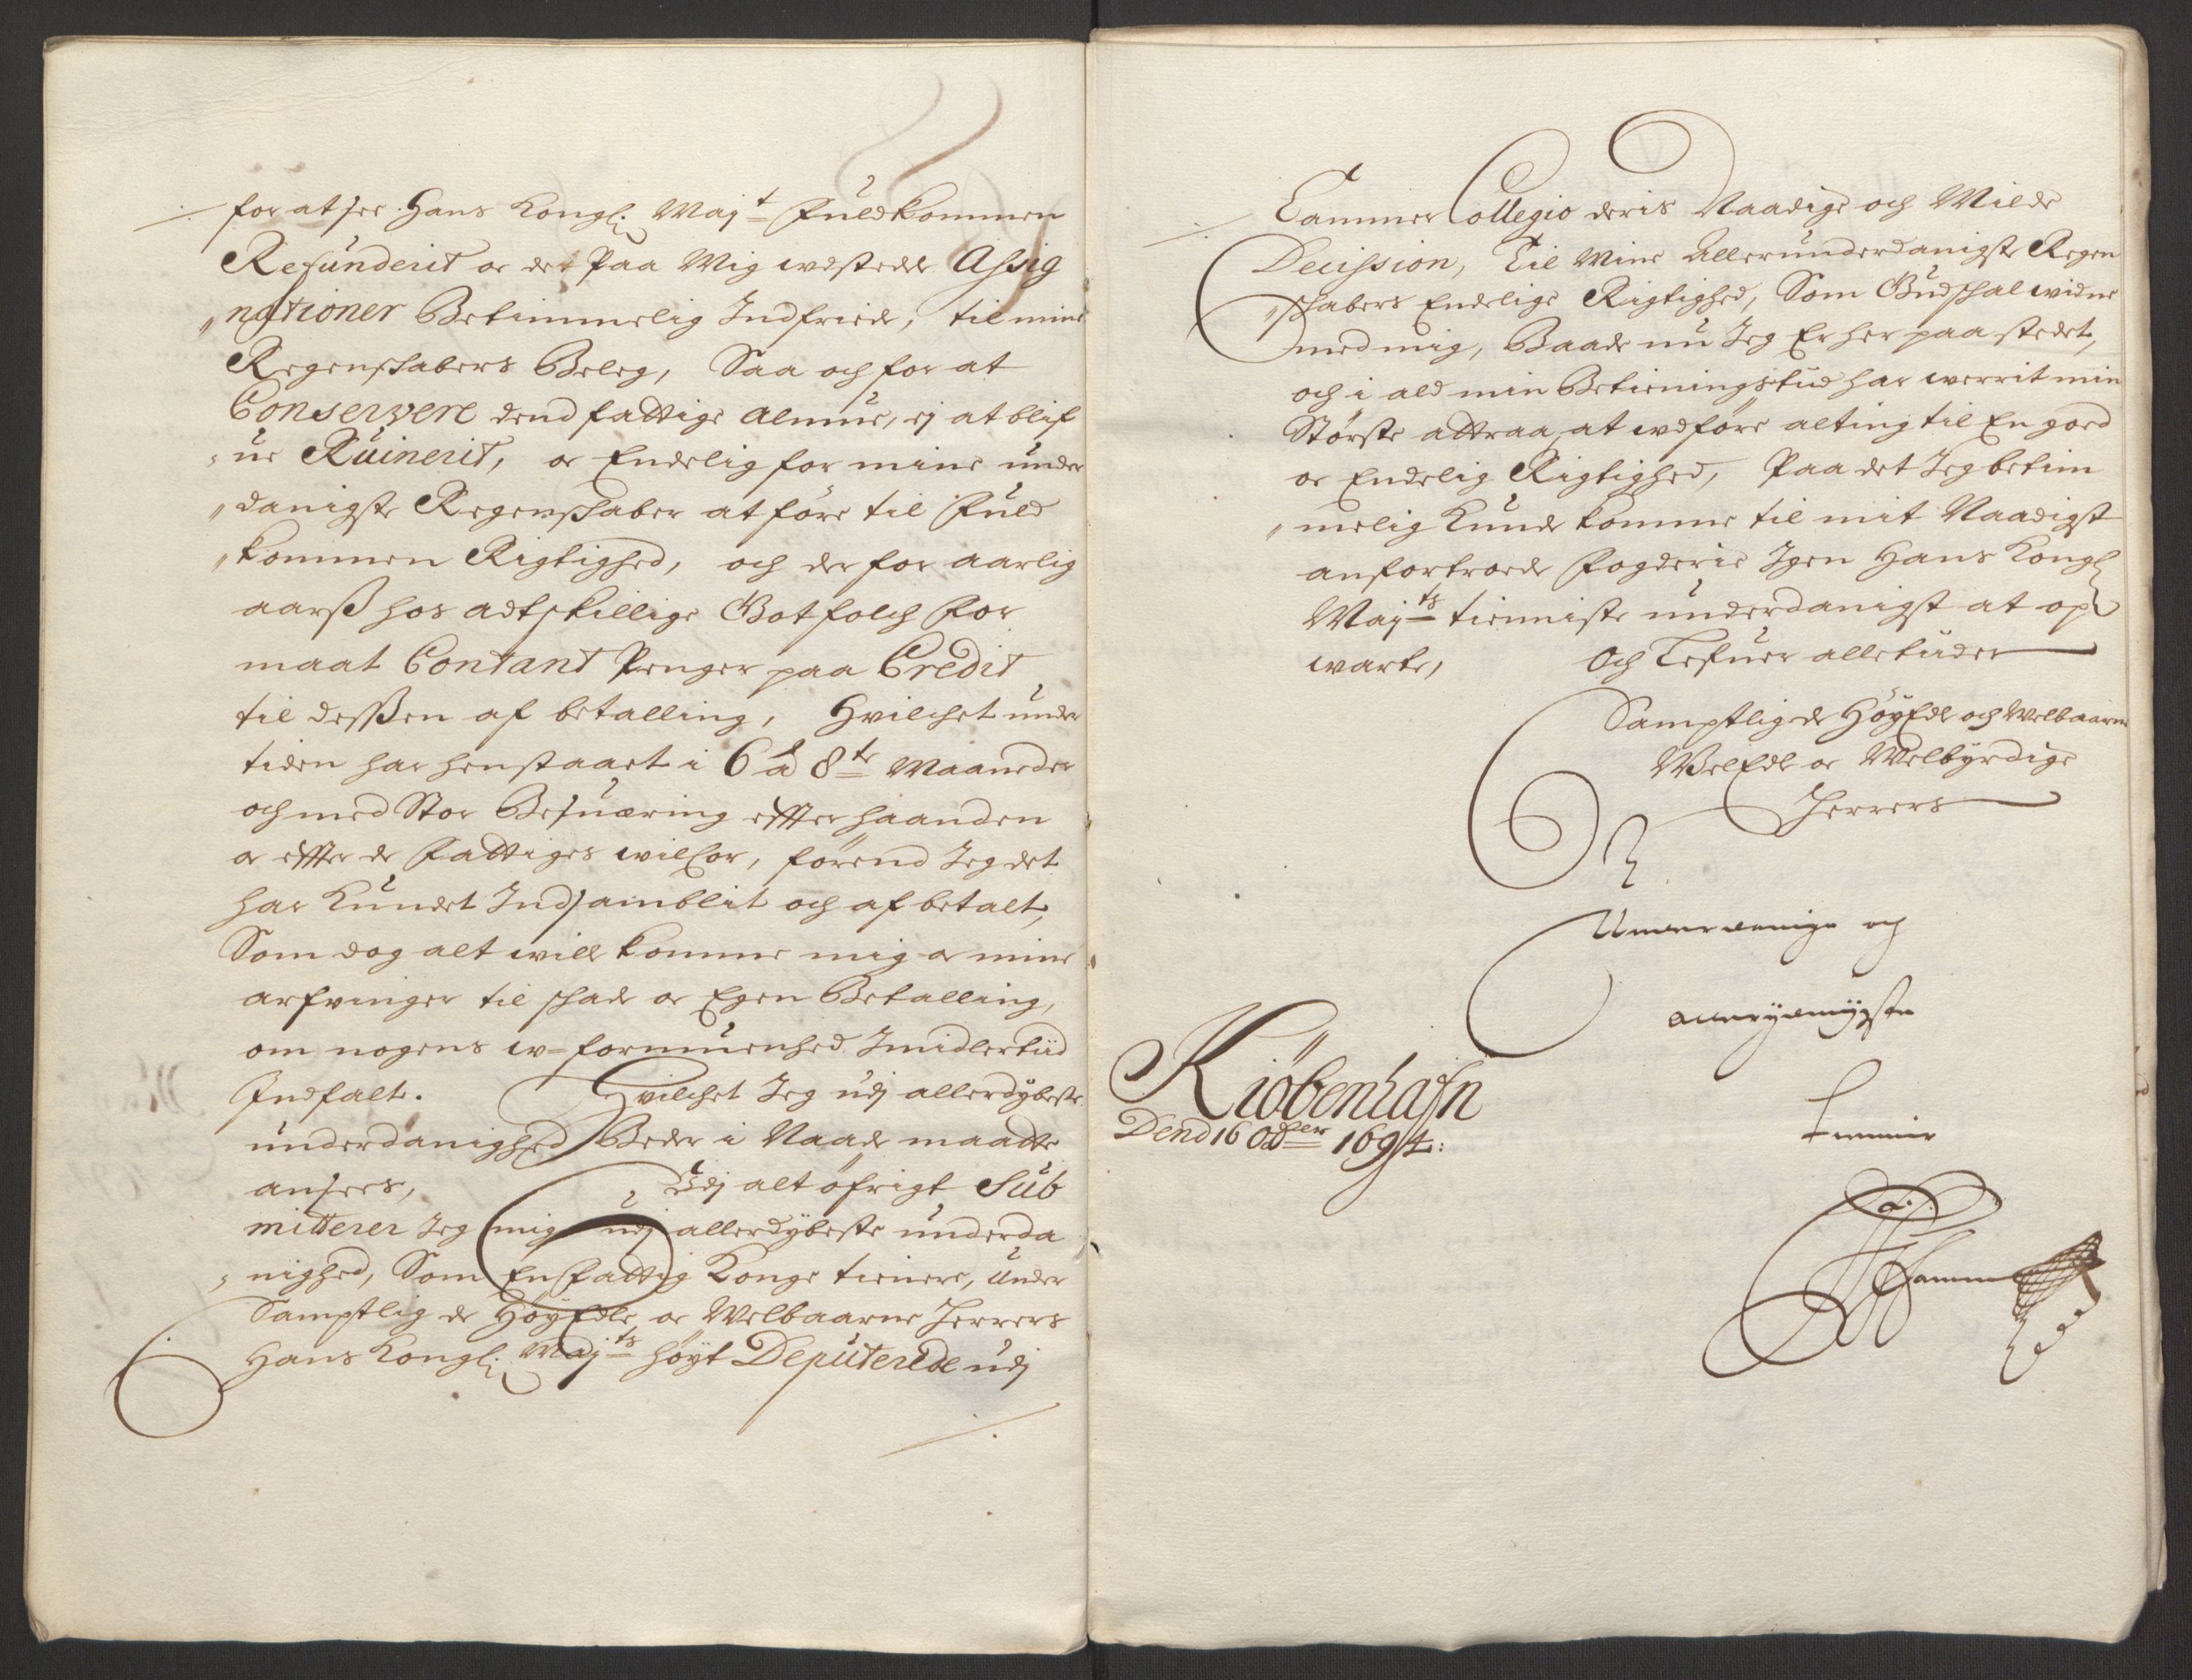 for at see Hans Kongl. Mayt Fuldkommen
Refunderit oc det Paa Mig udstedde Assig
nationer Betimmelig Indfriede, til mine
Regenskabers Beleg, Saa och for at
Conservere dend fattige Almue, ej at blif
ue Ruinerit, oc Endelig for mine under
danigste Regenskaber at före til Fuld
kommen Rigtighed, och der for aarlig
aarß hos adtskillige Got folch For
maat Contant Penger paa Credit
til desßen af betalling, Hvilchet under
tiden har henstaaet i 6 à 8te Maaneder
och med Stor Besuæring effter haanden
oc effter de Fattiges wilkor, förend Jeg det
har Kundet Indsamblit och af betalt,
Som dog alt will komme mig oc mine
arfvinger til skade oc Egen Betalling,
om nogens w-formuenhed Imidlertiid
Indfalt. Hvilchet Jeg udj allerdybeste
underdanighed Beder i Naade maatte
ansees, Udj alt öfrigt Sub
mitterer Jeg mig udj allerdybeste underda
nighed, Som En Fattig Konge tienere, Under
Samptlig de HöyEdle oc Welbaarne Herrers
Hans Kongl. Mayts höyt Deputerede udj
Cammer Collegio deris Naadige och Milde
Decission, Til Mine Allerunderdanigste Regen
skabers Endelige Rigtighed, Som Gud skal widne
med mig, Baade nu Jeg Er her paa stedet,
och i ald min Betieningstid har werrit min
Störste attraa, at udföre alting til En goed
oc Endelig Rigtighed, Paa det Jeg betim
melig Kunde komme til mit Naadigst
anfortroede Fogderie Igen Hans Kongl
Mayts tienniste underdanigst at op
warte, Och Lefuer alletiider
Samptlig de HöyEdle och Welbaarne
WelEdle oc Welbyrdige
Herrers
Underdanige och
allerydmygste
tienner
Kiöbenhafn
Dend 16 Octber 1694: